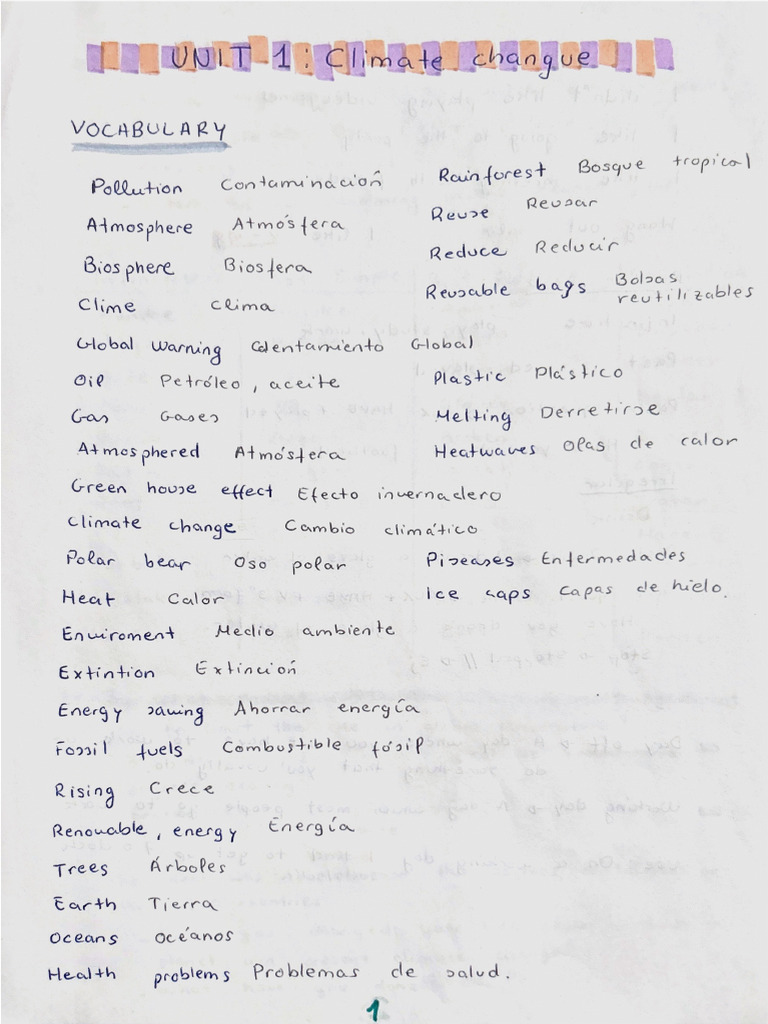 UNIT 1: Climate changue
VOCABULARY
Pollution Contaminación
Atmosphere Atmósfera
Biosphere Biosfera
Clime Clima
Global warning Calentamiento Global
Oil Petróleo, aceite
Gas Gases
Atmosphered Atmósfera
Green house effect Efecto invernadero
Climate change Cambio climático
Polar bear Oso polar
Heat Calor
Enviroment Medio ambiente
Extintion Extinción
Energy saving Ahorrar energía
Fossil fuels Combustible fósil
Rising Crece
Renovable, energy Energía
Trees Árboles
Earth Tierra
Oceans Océanos
Health problems Problemas de salud.
Rainforest Bosque tropical
Reuse Reusar
Reduce Reducir
Reusable bags Bolsas
reutilizables
Plastic Plástico
Melting Derretirse
Heatwaves Olas de calor
Diseases Enfermedades
Ice caps Capas de hielo.
1